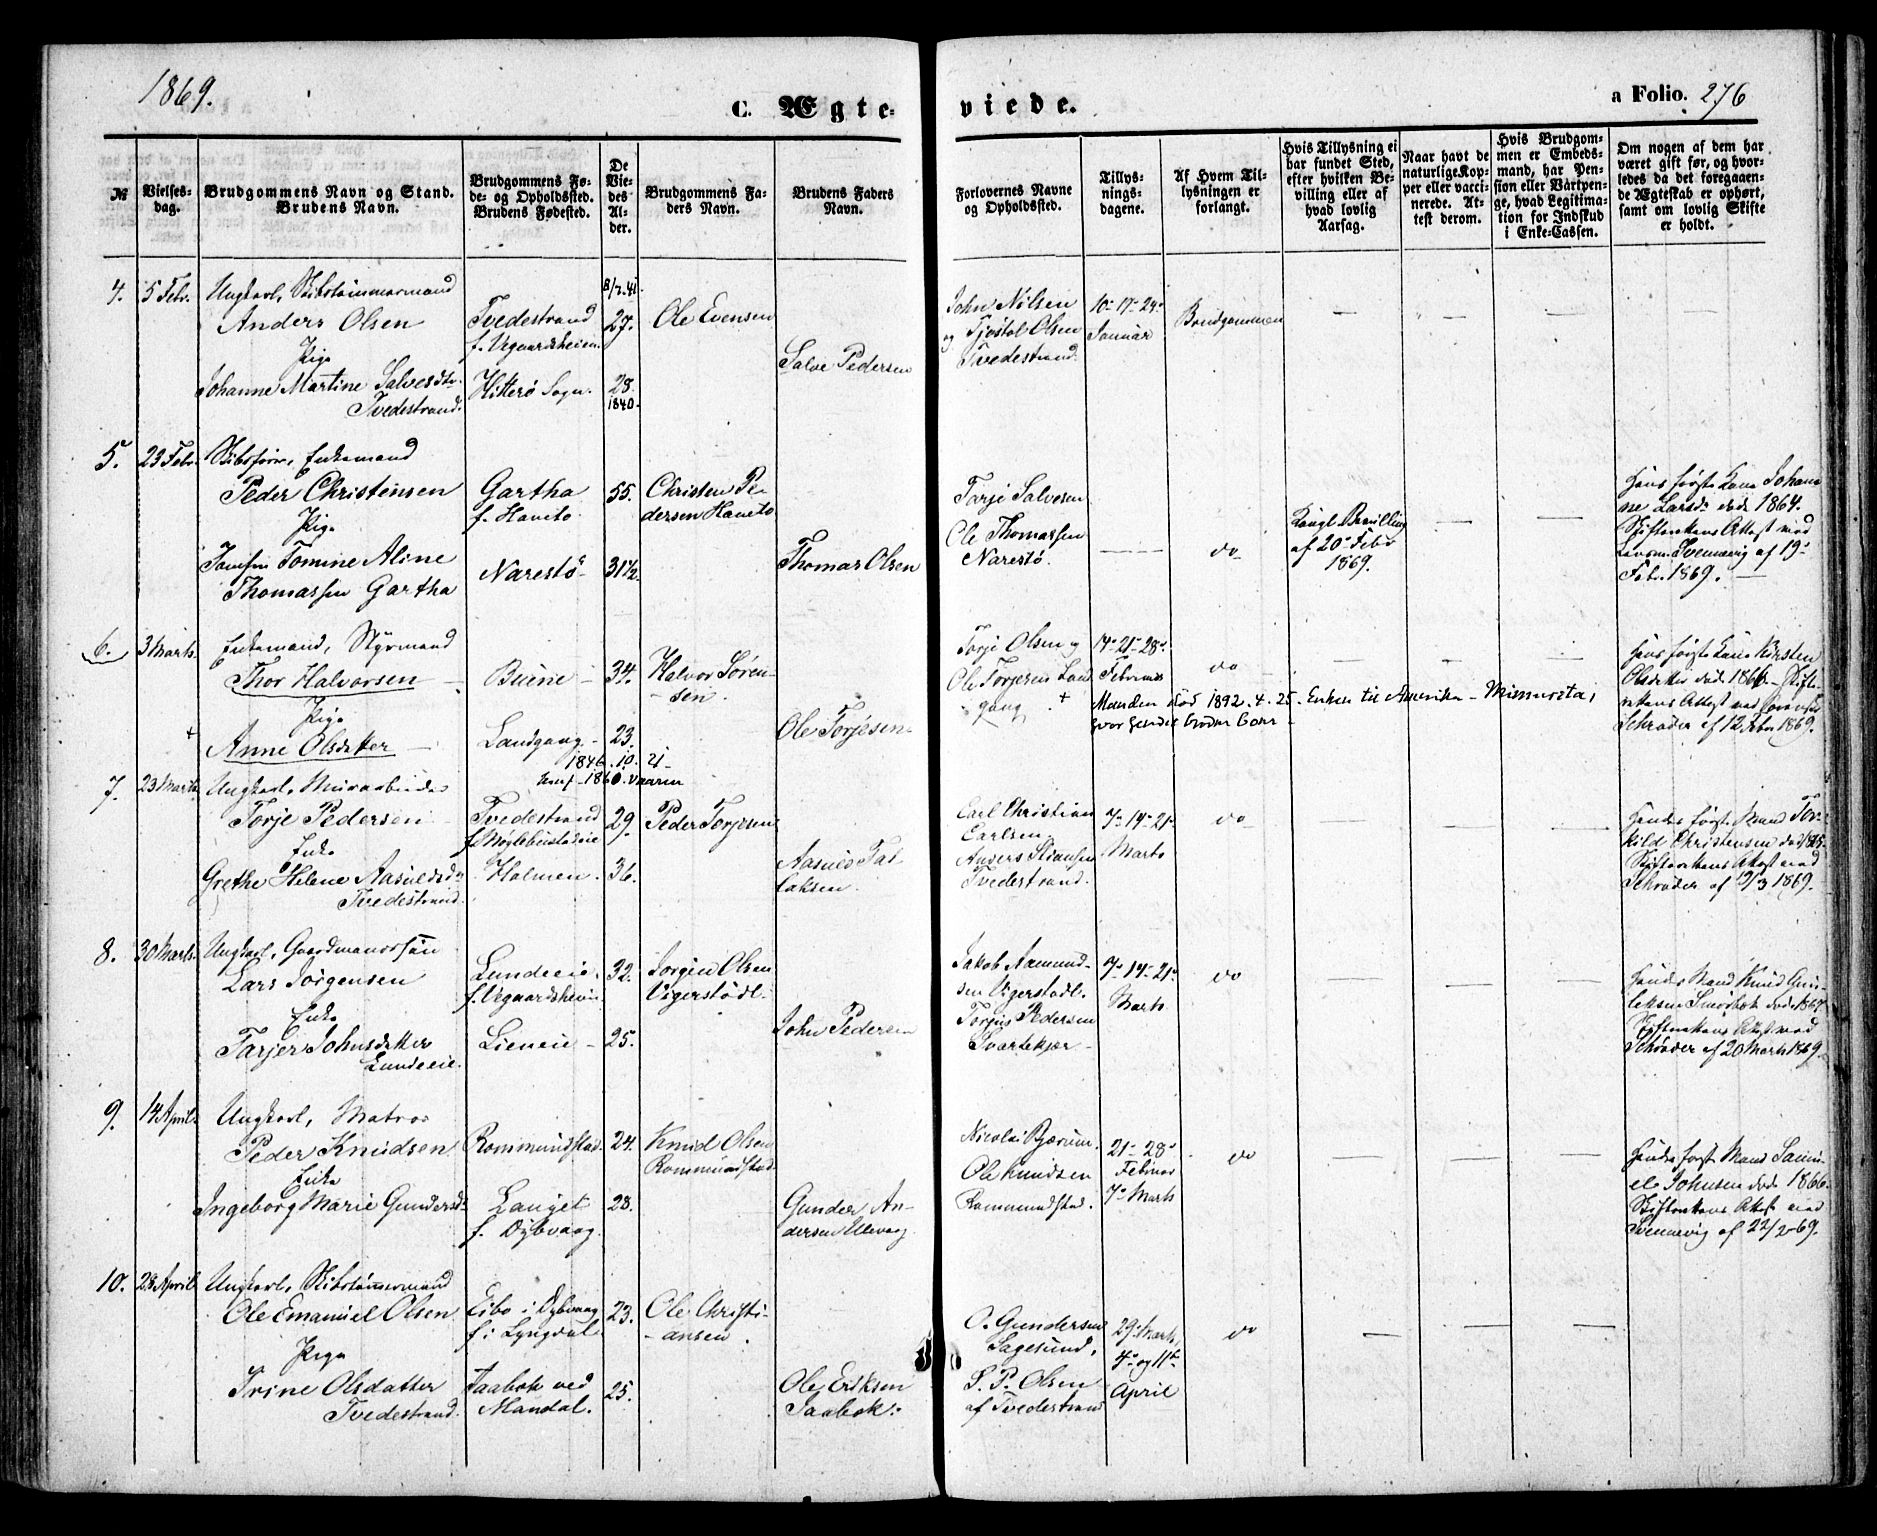 1869.
C. Ægte-
viede.
a Folio. 276
№
Vielses-
dag.
Brudgommens Navn og Stand.
Brudens Navn.
Brudgommens Fø-
de- og Opholdssted.
Brudens Fødested.
De
Vie-
des
Al-
der.
Brudgommens Fa-
ders Navn.
Brudens Faders
Navn.
Forlovernes Navne
og Opholdssted.
Tillys-
nings-
dagene.
Af Hvem Til-
lysningen er
forlangt.
Hvis Tillysning ei
har fundet Sted,
efter hvilken Be-
villing eller af
hvad lovlig
Aarsag.
Naar havt de
naturlige Kop-
per eller vacci-
nerede. At-
test derom.
Hvis Brudgom-
men er Embeds-
mand, har Pen-
sion eller Vartpen-
ge, hvad Legitima-
tion for Indskud
i Enke-Cassen.
Om nogen af dem har
været gift før, og hvor-
ledes da det foregaaen-
de Ægteskab er ophørt,
samt om lovlig Skifte
er holdt.
4.
5 Febr.
Ungkarl, Skibstømmermand
Anders Olsen
Pige
Johanne Martine Salvesdtr.
Tvedestrand.
Tvedestrand
f. Vegaardsheien.
Hitterø Sogn.
8/7.41.
27.
28.
1840.
Ole Evensen
Salve Pedersen
John Nilsen
og Tjøstol Olsen
Tvedestrand.
10- 17- 24-
Januar
Brudgommen
5.
23 Febr.
Skibsfører, Enkemand
Peder Christensen
Pige
Jomfru Tomine Aline
Thomassen Gartha
Gartha
f. Haneto
Narestø
55.
31½.
Christen Pe-
dersen Haneto
Thomas Olsen
Torje Salvesen
Ole Thomassen
Narestø.
do
Kongl Bevilling
af 20de Febr
1869.
Hans første Kone Johan-
ne Larsd. døde 1864.
Skifterettens Attest ved
Svennevig af 19-
Febr. 1869.
6.
3 Marts.
Enkemand, Styrmand
Thor Halvorsen
Pige
Anne Olsdatter
Buene
Landgang
34.
23.
1846. 10. 21-
konf-1860. Vaaren
Halvor Søren-
sen.
Ole Torjesen
Torje Olsen og
Ole Torjesen Land
gang
14- 21- 28-
Februar
do
Manden død 1892. 4. 25. Enken til Amerika - Minnesota,
hvor hendes brødre boer -
Hans første Kone Kirsten
Olsdatter døde 1866. Skifte-
rettens Attest ved
Schrøder af 12 Febr 1869.
7.
23 Marts
Ungkarl, Murarbeider
Torje Pedersen
Enke
Grethe Helene Aasuldsdr.
Tvedestrand.
Tvedestrand
Holmen.
29.
36.
Peder Torjesen
Carl Christian
Carlsen
Anders
Tvedestrand.
7- 14- 21-
Marts
do
Hendes første Mand Tor-
kild Christensen
Skifterettens Attest ved
Schrøder af 12/3 1869.
8.
30 Marts.
Ungkarl, Gaardmandssøn
Lars Jørgensen
Enke
Tarjer Johnsdatter
Lundeeie.
Lundeeie.
f. Vegaardsheien
Lieneie
32.
25.
Jørgen Olsen
Vigerstøl.
John Pedersen
Jakob Aamund-
sen Vigerstøl.
Torjus Pedersen
Svartekjær
7- 14- 21-
Marts
do
Hendes Mand Knud Gun-
leksen døde 1867
Skifterettens Attest ved
Schrøder af 20 Marts 1869.
9.
14 April.
Ungkarl, Matros
Peder Knudsen
Enke
Ingeborg Marie Gundersdr
Rommundstad
Lauget
f. Dybvaag.
24.
28.
Knud Olsen
Rommundstad
Gunder An-
dersen
Nicolai Bjerum.
Ole Knudsen
Rommundstad.
21- 28-
Februar
7- Marts
do
Hendes første Mand Samu-
el Johnsen døde 1866.
Skifterettens Attest ved
Svennevig af 22/2-69.
10.
28 April
Ungkarl, Skibstømmermand
Ole Emanuel Olsen
Pige
Trine Olsdatter
Tvedestrand.
Eibo i Dybvaag
f. i Lyngdal.
Faabok ved
Mandal.
23.
25.
Ole Christi-
ansen.
Ole Eriksen
Faabok.
O. Gundersen
Sagesund,
S. P. Olsen
af Tvedestrand
29- Marts,
4- og 11te
April
do